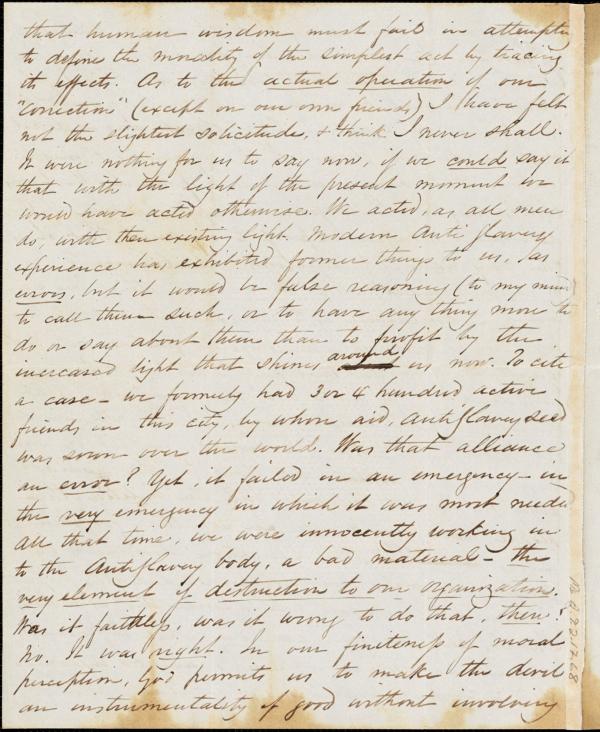 that human wisdom must fail in attempting
to define the morality of the simplest act by tracing
its effects. As to the actual operation of our
"correction" (except on our own friends) I have felt
not the slightest solicitude, & think I never shall.
It were nothing for us to say now, if we could say it
that with the light of the present moment we
would have acted otherwise. We acted, as all men
do, with then existing light. Modern Anti Slavery
experience has exhibited former things to us, as
errors, but it would be false reasoning (to my mind)
to call them such, or to have any thing more to
do or say about them than to profit by the
increased light that shines around us now. To cite
a case - we formerly had 3 or 4 hundred active
friends in this city, by whose aid, Antislavery seed
was sown over the world. Was that alliance
an error? Yet, it failed in an emergency - in
the very emergency in which it was most needed
All that time, we were innocently working in
to the Antislavery body, a bad material - the
very element of destruction to our organization.
Was it faithless, was it wrong to do that, then?
No. It was right. In our finiteness of moral
perception, God permits us to make the devil
an instrumentality of good without involving